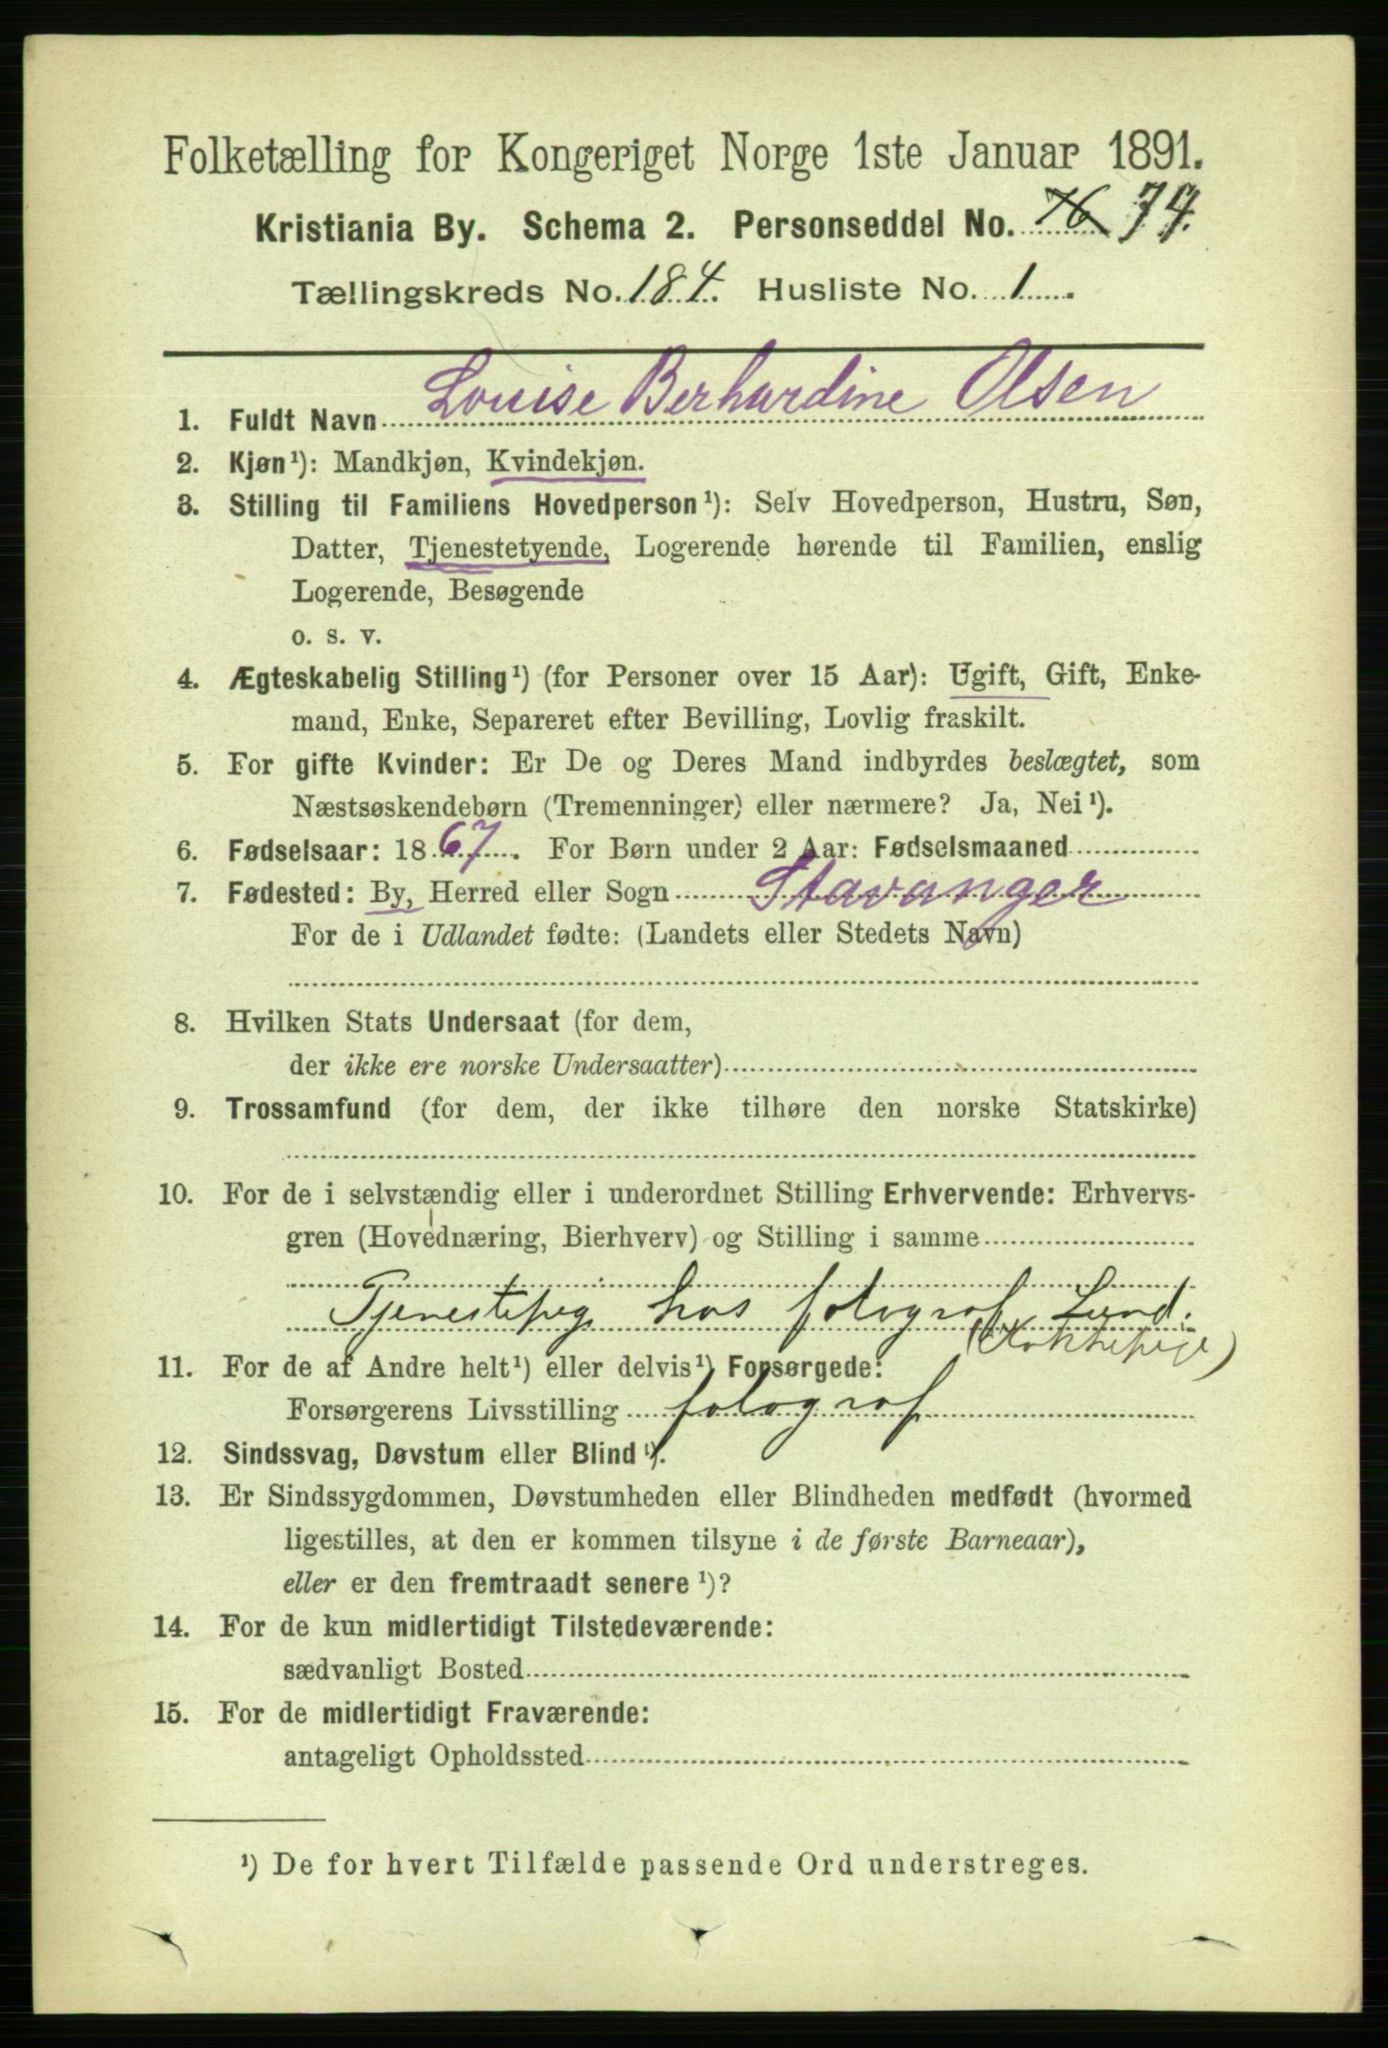 Folketælling for Kongeriget Norge 1ste Januar 1891.
Kristiania By. Schema 2. Personseddel No. 76 74.
Tællingskreds No. 184. Husliste No. 1
1. Fuldt Navn Louise Berhardine Olsen
2. Kjøn¹): Mandkjøn, Kvindekjøn.
3. Stilling til Familiens Hovedperson¹): Selv Hovedperson, Hustru, Søn,
Datter, Tjenestetyende, Logerende hørende til Familien, enslig
Logerende, Besøgende
o. s. v.
4. Ægteskabelig Stilling¹) (for Personer over 15 Aar): Ugift, Gift, Enke-
mand, Enke, Separeret efter Bevilling, Lovlig fraskilt.
5. For gifte Kvinder: Er De og Deres Mand indbyrdes beslægtet, som
Næstsøskendebørn (Tremenninger) eller nærmere? Ja, Nei¹).
6. Fødselsaar: 1867. For Børn under 2 Aar: Fødselsmaaned
7. Fødested: By, Herred eller Sogn Stavanger
For de i Udlandet fødte: (Landets eller Stedets Navn)
8. Hvilken Stats Undersaat (for dem,
der ikke ere norske Undersaatter)
9. Trossamfund (for dem, der ikke tilhøre den norske Statskirke)
10. For de i selvstændig eller i underordnet Stilling Erhvervende: Erhvervs-
gren (Hovednæring, Bierhverv) og Stilling i samme
Tjenestepig hos fotograf Lund.
(Kokkepige)
11. For de af Andre helt¹) eller delvis¹) Forsørgede:
Forsørgerens Livsstilling fotograf
12. Sindssvag, Døvstum eller Blind¹).
13. Er Sindssygdommen, Døvstumheden eller Blindheden medfødt (hvormed
ligestilles, at den er kommen tilsyne i de første Barneaar),
eller er den fremtraadt senere¹)?
14. For de kun midlertidigt Tilstedeværende:
sædvanligt Bosted
15. For de midlertidigt Fraværende:
antageligt Opholdssted
¹) De for hvert Tilfælde passende Ord understreges.